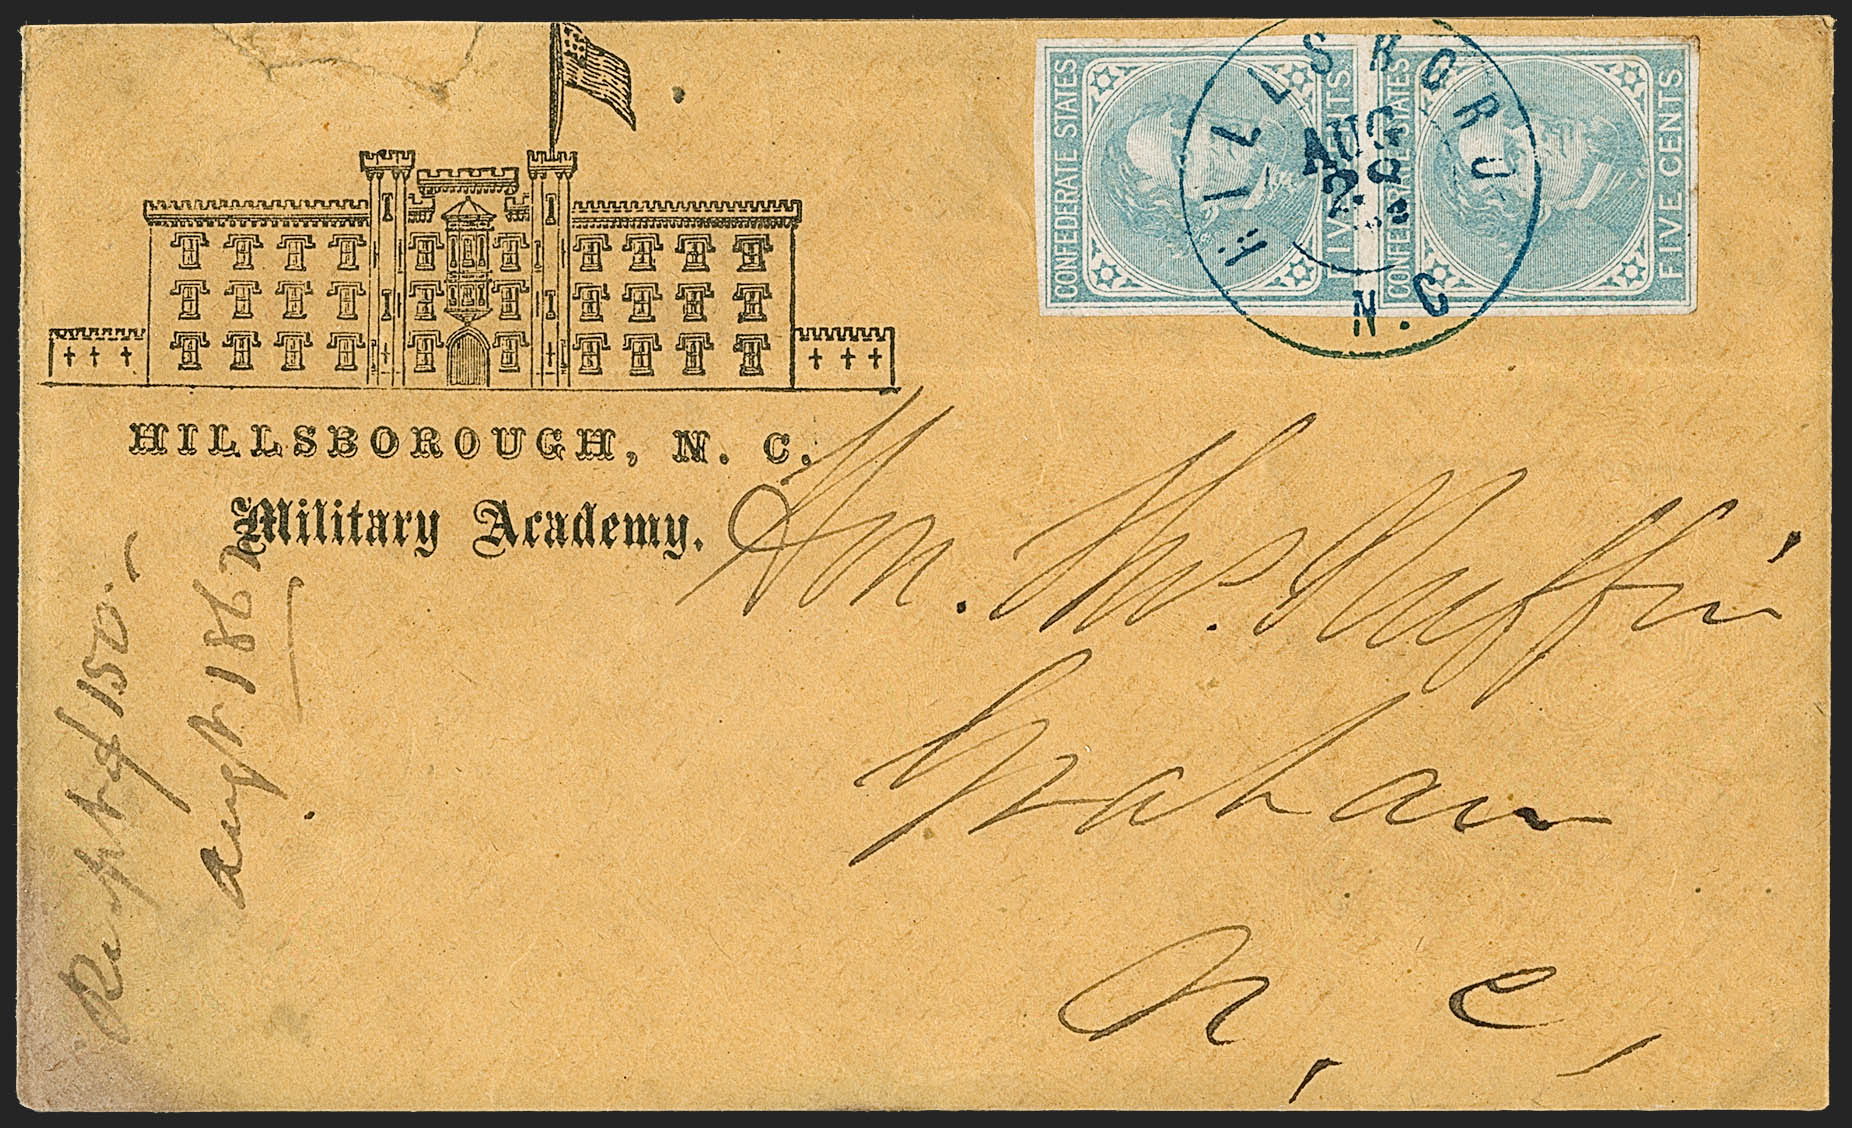 HILLSBORO'
AUG
N.C
CONFEDERATE STATES
FIVE CENTS
CONFEDERATE STATES
FIVE CENTS
HILLSBOROUGH, N. C.
Military Academy.
Hon. Thos. Ruffin
Graham
N. C.
150.
Augst 1862